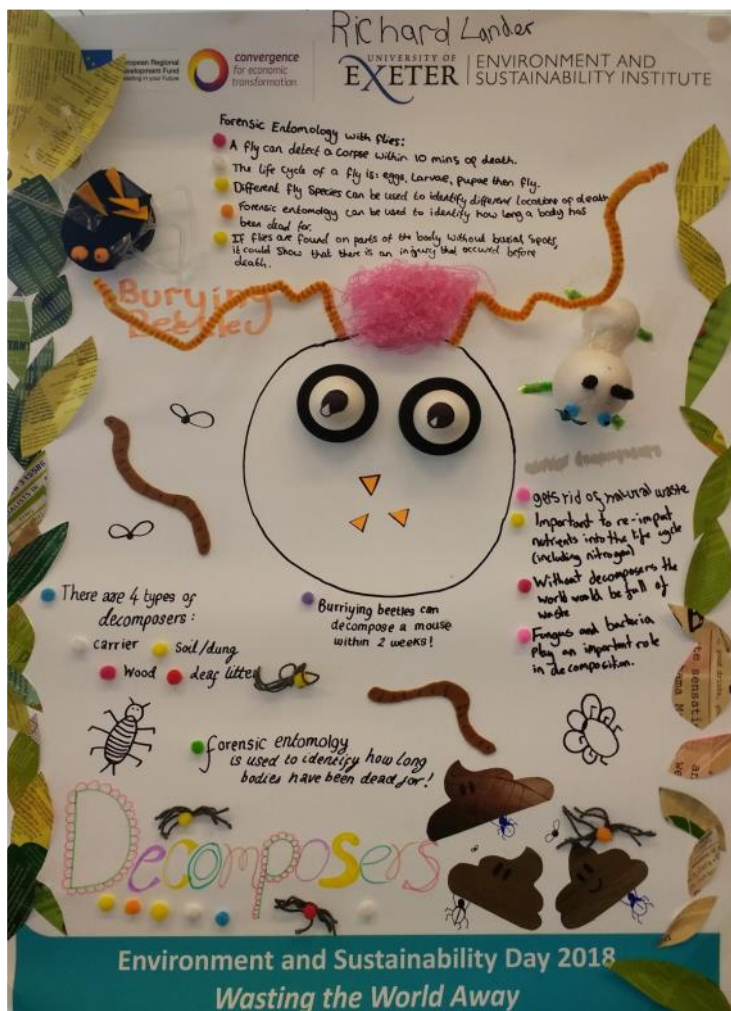 Richard Lander
European Regional
Development Fund
Investing in your Future
convergence
for economic
transformation
UNIVERSITY OF
EXETER
ENVIRONMENT AND
SUSTAINABILITY INSTITUTE
Forensic Entomology with flies:
A fly can detect a corpse within 10 mins of death.
The life cycle of a fly is: eggs, Larvae, pupae then fly.
Different fly species can be used to identify different locations of death
Forensic entomology can be used to identify how long a body has
been dead for.
If flies are found on parts of the body without burial spots,
it could show that there is an injury that occured before
death.
Burying
Beetle
gets rid of natural waste
Important to re-imput
nutrients into the life cycle
(including nitrogen)
Without decomposers the
world would be full of
waste
Fungus and bacteria
play an important role
in decomposition.
There are 4 types of
decomposers:
carrier
Soil/dung
Wood
deaf litter
Burriying beetles can
decompose a mouse
within 2 weeks!
forensic entomolgy
is used to identify how long
bodies have been dead for!
Decomposers
Environment and Sustainability Day 2018
Wasting the World Away